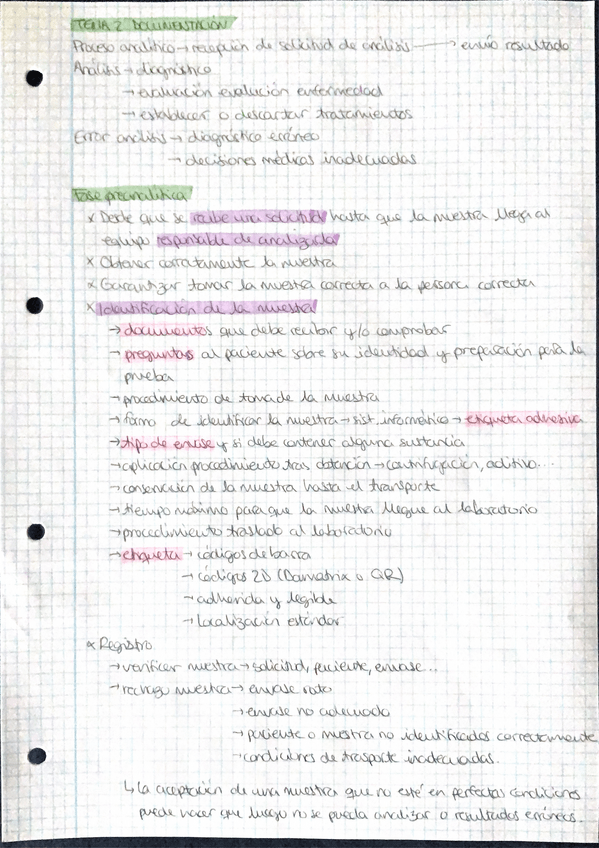 TEMA 2 DOCUMENTACIÓN
Proceso analítico → recepción de solicitud de análisis → envío resultado
Análisis → diagnóstico
→ evaluación evolución enfermedad
→ establecer o descartar tratamientos
Error análisis → diagnóstico erróneo
→ decisiones médicas inadecuadas
Fase preanalítica
x Desde que se recibe una solicitud hasta que la muestra llega al
equipo responsable de analizarla
x Obtener correctamente la muestra
x Garantizar tomar la muestra correcta a la persona correcta
x Identificación de la muestra
→ documentos que debe recibir y/o comprobar
→ preguntas al paciente sobre su identidad y preparación para la
prueba
→ procedimiento de toma de la muestra
→ forma de identificar la muestra → sist. informático → etiqueta adhesiva
→ tipo de envase y si debe contener alguna sustancia
→ aplicación procedimiento tras obtención → centrifugación, aditivo...
→ conservación de la muestra hasta el transporte
→ tiempo máximo para que la muestra llegue al laboratorio
→ procedimiento traslado al laboratorio
→ etiqueta → códigos de barra
→ códigos 2D (Damatrix o QR)
→ adherida y legible
→ localización estándar
x Registro
→ verificar muestra → solicitud, paciente, envase..
→ rechazo muestra → envase roto
→ envase no adecuado
→ paciente o muestra no identificados correctamente
→ condiciones de trasporte inadecuadas.
↳ La aceptación de una muestra que no esté en perfectas condiciones
puede hacer que luego no se pueda analizar o resultados erróneos.